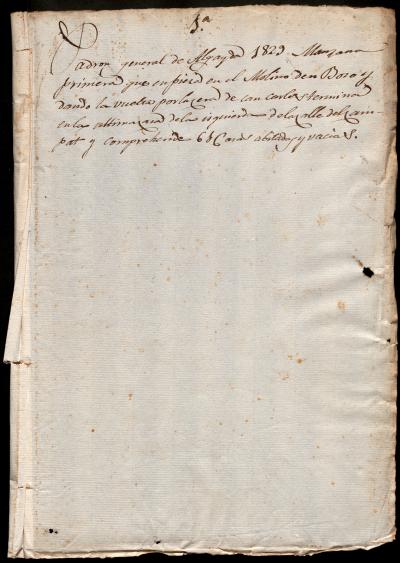 1.ª
Padron general de Algayda 1829 Manzana
primera que enpieza en el Molino den Poso y
dando la vuelta por la era de can Carlos termina
en la ultima casa de la izquierda de la calle del Cam-
pet y comprehende 61 Casas abitadas y vacias.